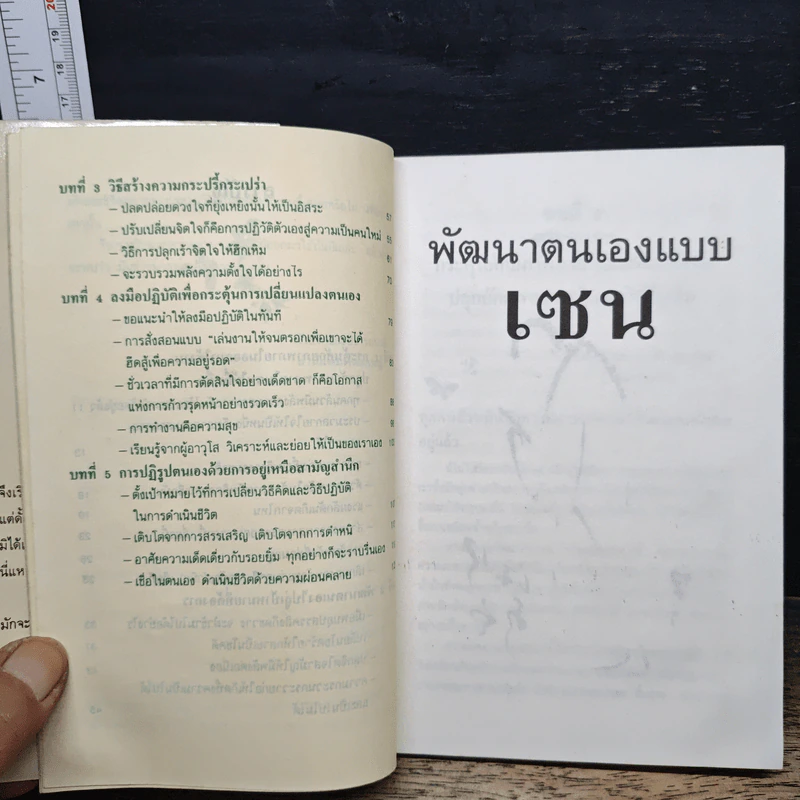 บทที่ 3 วิธีสร้างความกระปรี้กระเปร่า
–ปลดปล่อยดวงใจที่ยุ่งเหยิงนั้นให้เป็นอิสระ 51
–ปรับเปลี่ยนจิตใจก็คือการปฏิวัติตัวเองสู่ความเป็นคนใหม่
–วิธีการปลุกเร้าจิตใจให้ฮึกเหิม
–จะรวบรวมพลังความตั้งใจได้อย่างไร 70
บทที่ 4 ลงมือปฏิบัติเพื่อกระตุ้นการเปลี่ยนแปลงตนเอง
–ขอแนะนำให้ลงมือปฏิบัติในทันที 79
– การสั่งสอนแบบ "เล่นงานให้จนตรอกเพื่อเขาจะได้
ฮึดสู้เพื่อความอยู่รอด"
– ชั่วเวลาที่มีการตัดสินใจอย่างเด็ดขาด ก็คือโอกาส
แห่งการก้าวรุดหน้าอย่างรวดเร็ว
– การทำงานคือความสุข
–เรียนรู้จากผู้อาวุโส วิเคราะห์และย่อยให้เป็นของเราเอง
บทที่ 5 การปฏิรูปตนเองด้วยการอยู่เหนือสามัญสำนึก
–ตั้งเป้าหมายไว้ที่การเปลี่ยนวิธีคิดและวิธีปฏิบัติ
ในการดำเนินชีวิต
–เติบโตจากการสรรเสริญ เติบโตจากการตำหนิ
–อาศัยความเด็ดเดี่ยวกับรอยยิ้ม ทุกอย่างก็จะราบรื่นเอง
–เชื่อในตนเอง ดำเนินชีวิตด้วยความผ่อนคลาย
พัฒนาตนเองแบบ
เซน